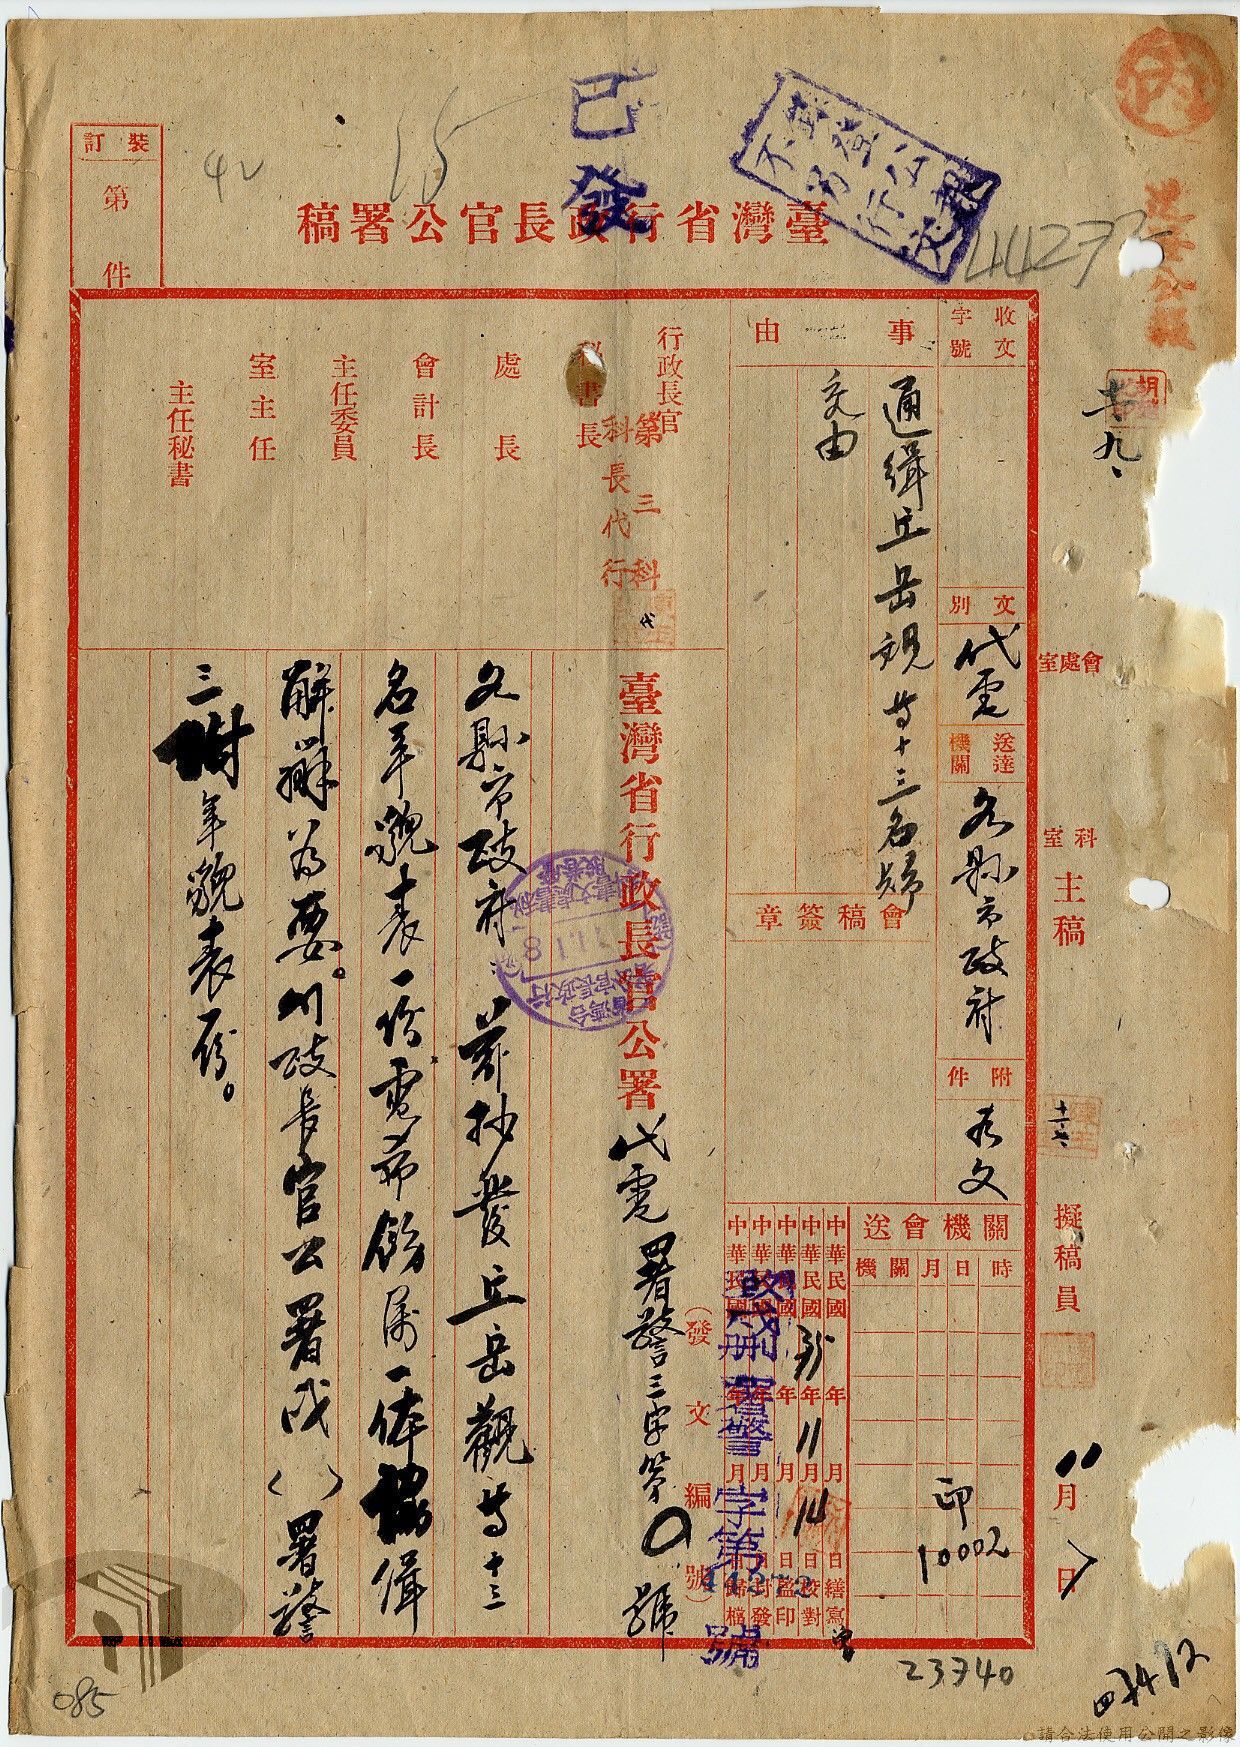 臺灣省行政長官公署稿
已發
刊登公報
不另行文
丙
44272
42
15
裝訂
第
件
收文
字號
事
由
通緝丘岳觀等十三名歸
交由
文別
代電
送達機關
各縣市政府
附件
表文
會稿簽章
關機會送
時
日
月
關機
印
10002
中華民國
年
月
日繕寫
中華民國35年11月14日校對
中華民國
年
月
日蓋印
中華民國
年
月
日封發
中華民國
年
月
日歸檔
致戌刪署警字第44272號
(發文編號)
會處室
科室
主稿
擬稿員
11月
日
胡
行政長官
秘書長
第三科
科長代行
代
處長
會計長
主任委員
室主任
主任秘書
臺灣省行政長官公署代電 署警三字第 號
各縣市政府:茲抄發丘岳觀等十三
名年貌表一份電希飭屬一体協緝
解辦為要。行政長官公署戌( )署警
三附年貌表一份。
11.1.8
23740
085
請合法使用公開之影像